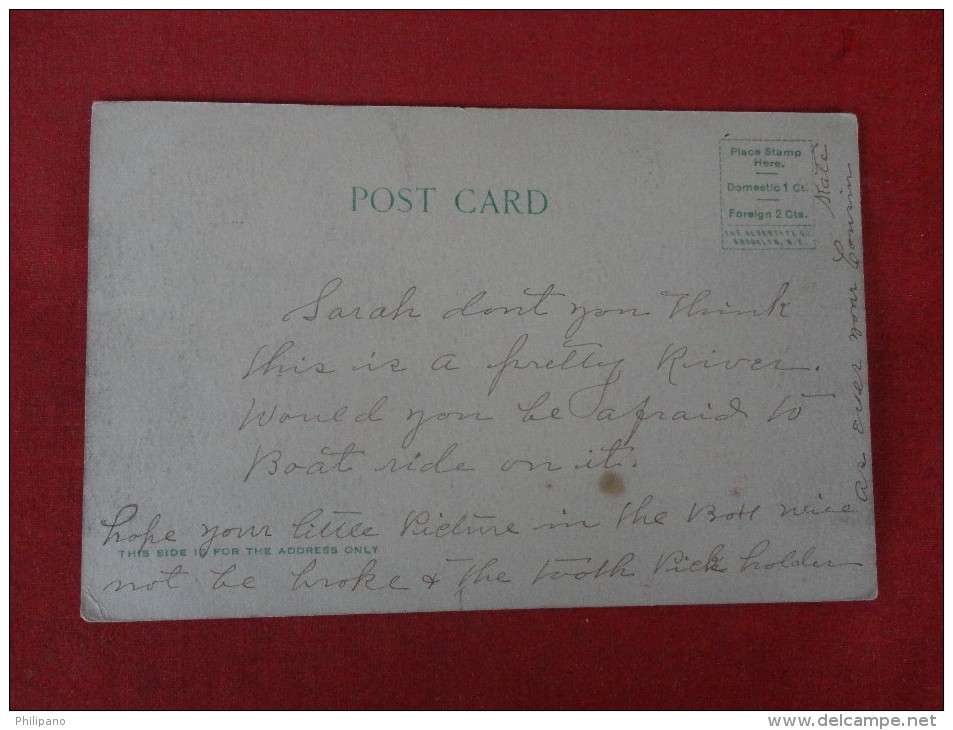 POST CARD
Place Stamp
Here.
Domestic 1 Ct.
Foreign 2 Cts.
THE ALBERTYPE CO.
BROOKLYN, N.Y.
Sarah dont you think
this is a pretty River.
Would you be afraid to
Boat ride on it.
hope your little Picture in the Box
THIS SIDE IS FOR THE ADDRESS ONLY
not be broke & the tooth Pick holder
as ever your Cousin
Kate
Philipano
www.delcampe.net